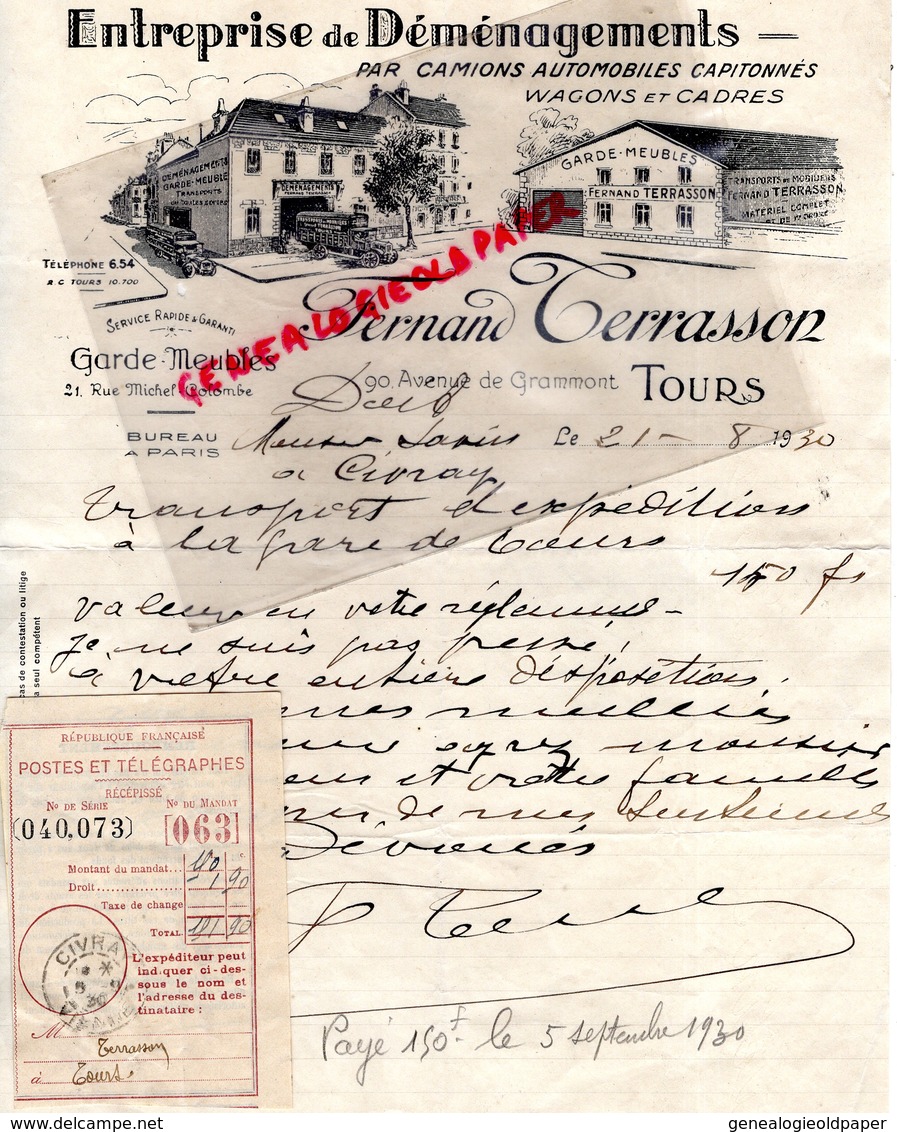 Entreprise de Déménagements
PAR CAMIONS AUTOMOBILES CAPITONNÉS
WAGONS ET CADRES
DÉMÉNAGEMENTS
GARDE-MEUBLE
TRANSPORTS
DÉMÉNAGEMENTS
FERNAND TERRASSON
GARDE-MEUBLES
FERNAND TERRASSON
TRANSPORTS DE MOBILIERS
FERNAND TERRASSON
MATÉRIEL COMPLET
TÉLÉPHONE 6.54
R.C TOURS 10.700
SERVICE RAPIDE & GARANTI
Fernand Terrasson
Garde-Meubles
21, Rue Michel Colombe
90, Avenue de Grammont TOURS
GENEALOGIEOLDPAPER
Doit
BUREAU
A PARIS
Le 21 - 8 1930
à Civray
transport d'expédition
à la gare de Tours
150 fs
valeur en votre réglement -
Je ne suis pas pressé,
à votre entière disposition.
cas de contestation ou litige
a seul compétent
mes meilleurs
monsieur
et votre famille
de mes sentiments
Dévoués
RÉPUBLIQUE FRANÇAISE
POSTES ET TÉLÉGRAPHES
RÉCÉPISSÉ
No DE SÉRIE No DU MANDAT
(040.073) [063]
Montant du mandat...
Droit.................. 1 90
Taxe de change
TOTAL
CIVRAY
VIENNE
L'expéditeur peut
indiquer ci-des-
sous le nom et
l'adresse du des-
tinataire :
M
Terrasson
à Tours
Payé 150f. le 5 septembre 1930
genealogieoldpaper